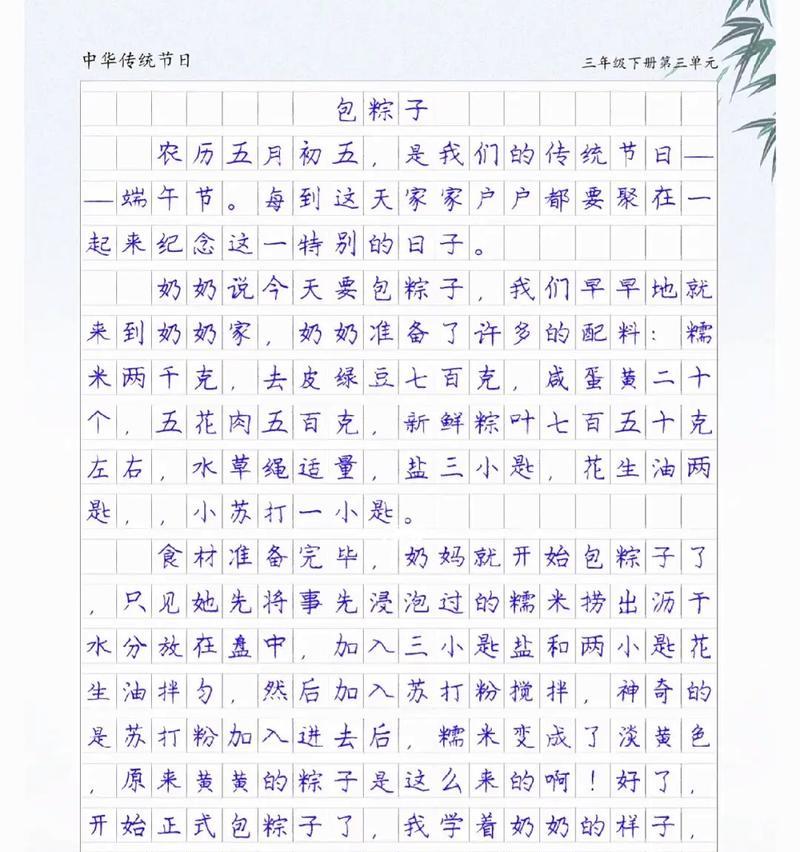 中华传统节日
三年级下册第三单元
包粽子
农历五月初五，是我们的传统节日—
—端午节。每到这天家家户户都要聚在一
起来纪念这一特别的日子。
奶奶说今天要包粽子，我们早早地就
来到奶奶家，奶奶准备了许多的配料：糯
米两千克，去皮绿豆七百克，咸蛋黄二十
个，五花肉五百克，新鲜粽叶七百五十克
左右，水草绳适量，盐三小匙，花生油两
匙，，小苏打一小匙。
食材准备完毕，奶妈就开始包粽子了
，只见她先将事先浸泡过的糯米捞出沥干
水分放在盘中，加入三小匙盐和两小匙花
生油拌匀，然后加入苏打粉搅拌，神奇的
是苏打粉加入进去后，糯米变成了淡黄色
，原来黄黄的粽子是这么来的啊！好了，
开始正式包粽子了，我学着奶奶的样子，